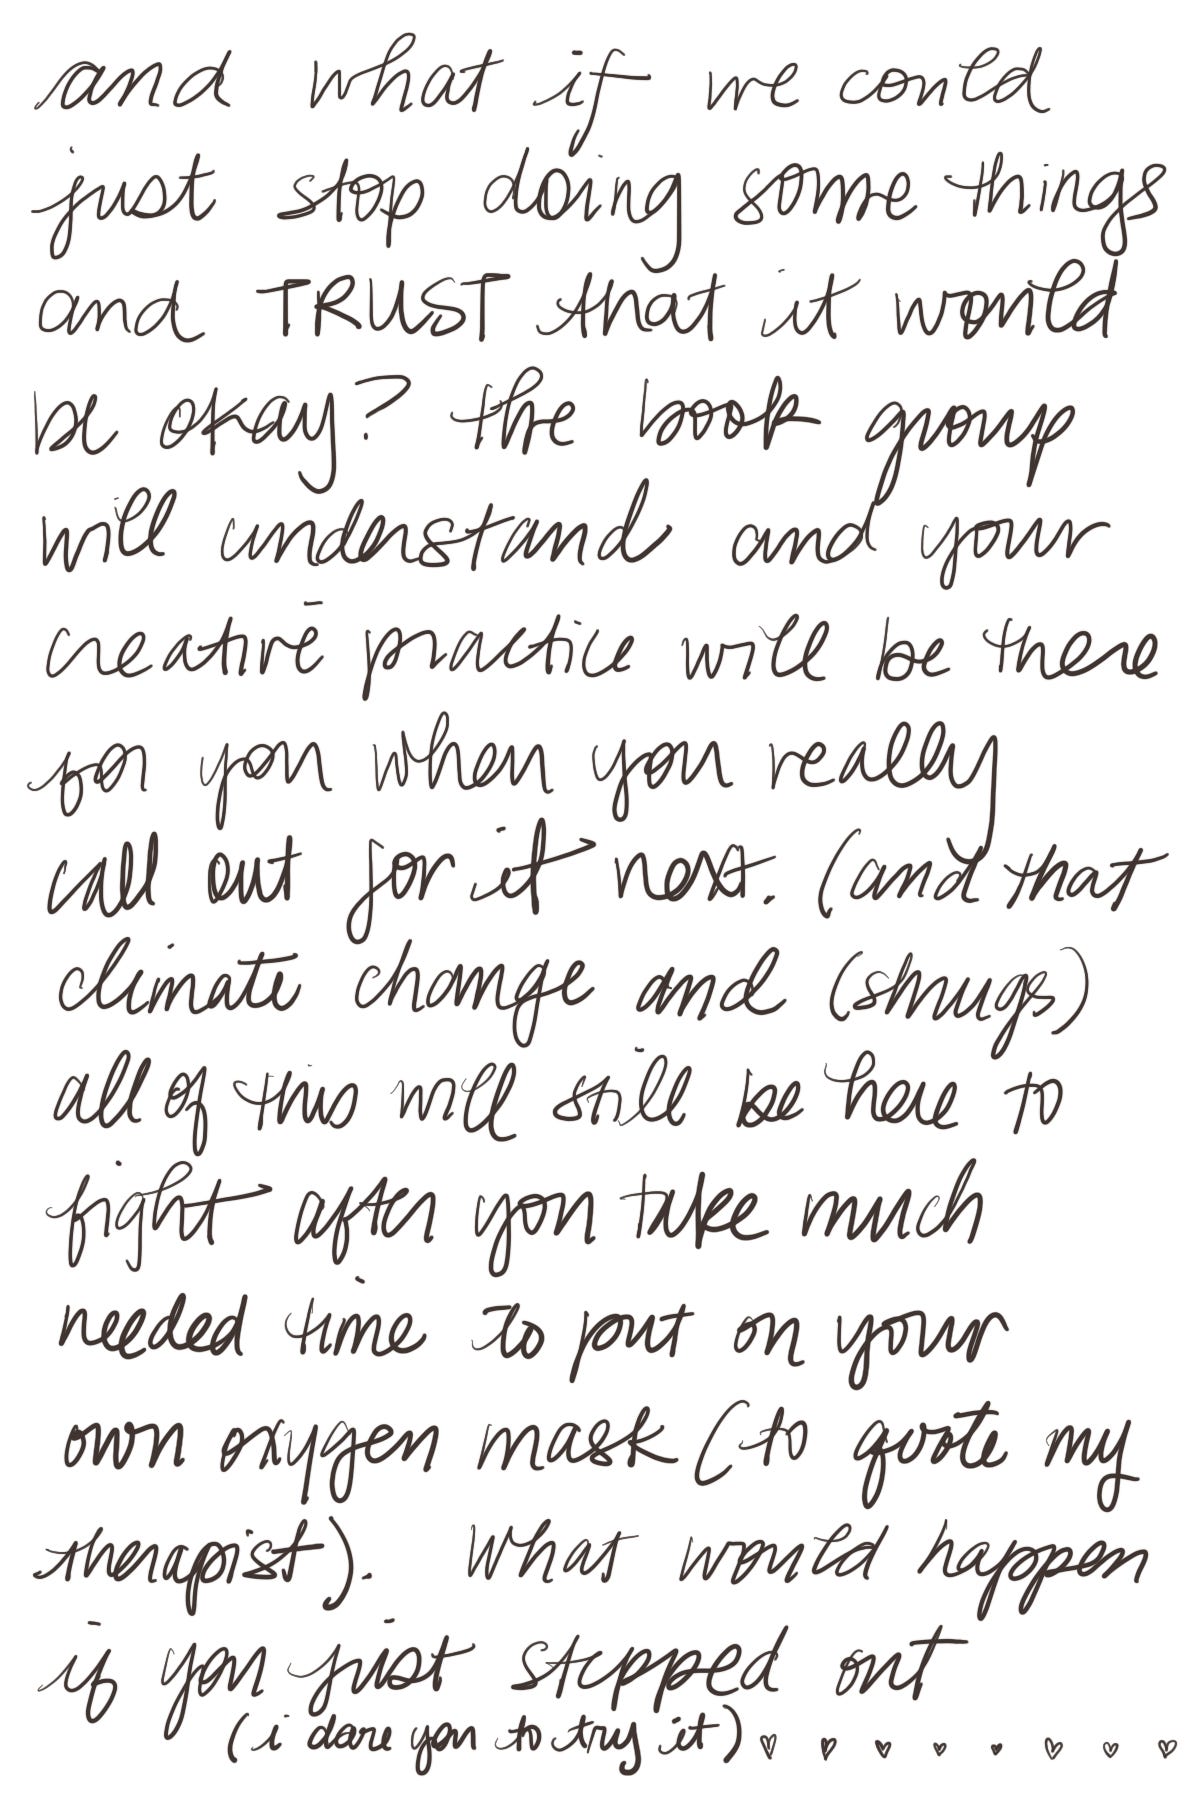 and what if we could
just stop doing some things
and TRUST that it would
be okay? the book group
will understand and your
creative practice will be there
for you when you really
call out for it next. (and that
climate change and (shrugs)
all of this will still be here to
fight after you take much
needed time to put on your
own oxygen mask (to quote my
therapist). What would happen
if you just stepped out
(i dare you to try it) ♡ ♡ ♡ ♡ ♡ ♡ ♡ ♡